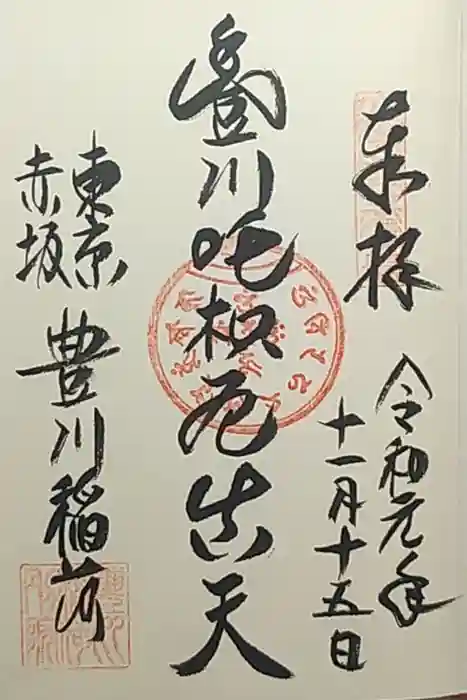 奉拝
令和元年
十一月十五日
豊川吒枳尼真天
東京
赤坂
豊川稲荷